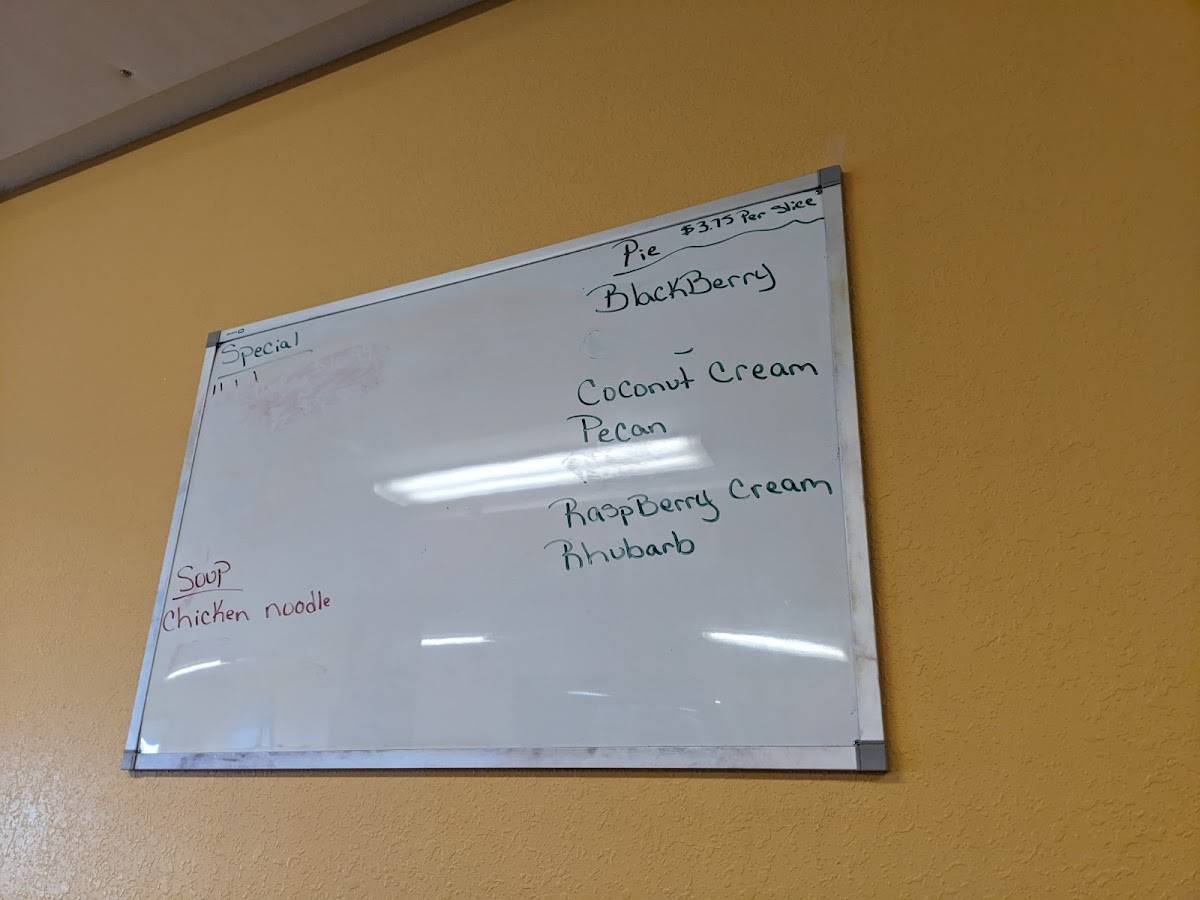 Pie $3.75 Per Slice
BlackBerry
Coconut Cream
Pecan
RaspBerry Cream
Rhubarb
Special
Soup
Chicken noodle